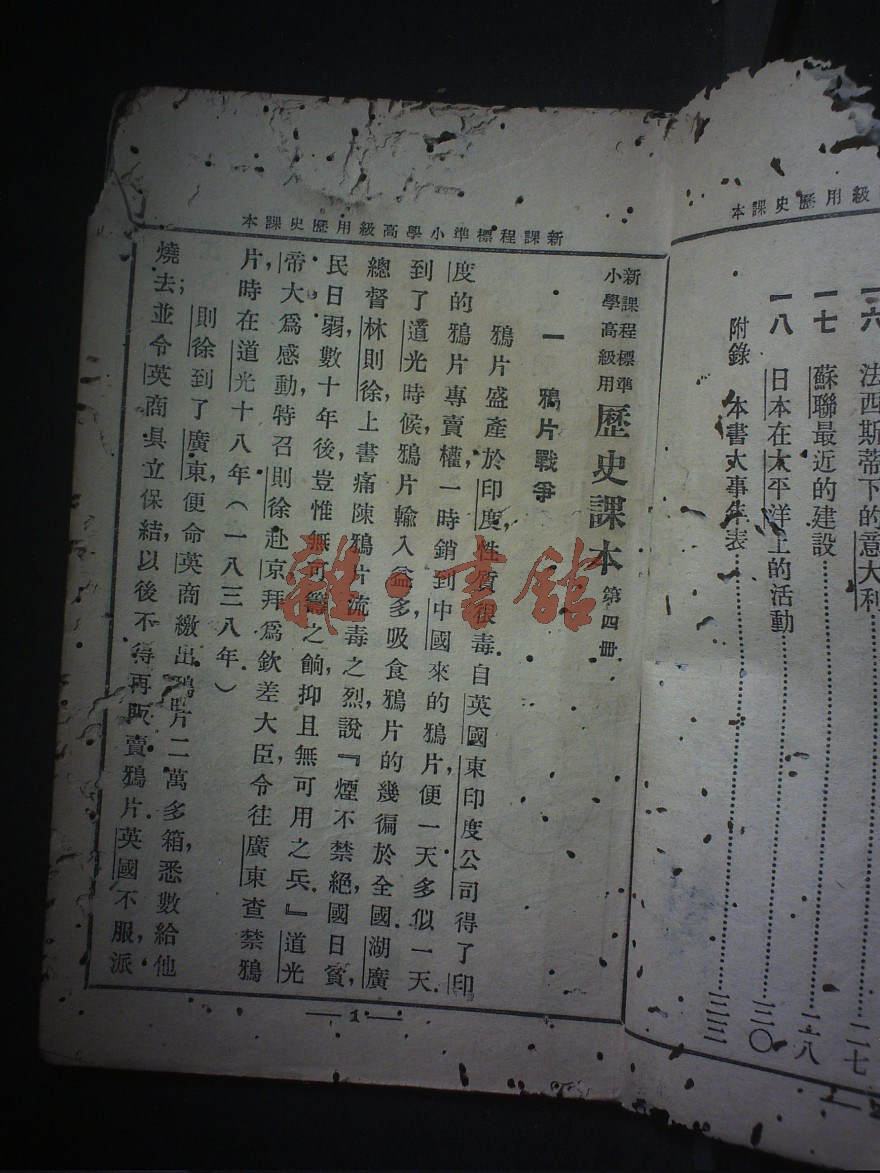 級用歷史課本
一六 法西斯蒂下的意大利……二七
一七 蘇聯最近的建設……二八
一八 日本在太平洋上的活動……三〇
附錄 本書大事年表……三三
新課程標準小學高級用歷史課本
新課程標準
小學高級用
歷史課本 第四冊
一 鴉片戰爭
鴉片盛產於印度，性質很毒。自英國東印度公司得了印
度的鴉片專賣權，一時銷到中國來的鴉片，便一天多似一天。
到了道光時候，鴉片輸入益多，吸食鴉片的幾徧於全國。湖廣
總督林則徐上書痛陳鴉片流毒之烈，說『煙不禁絕，國日貧，
民日弱，數十年後，豈惟無可籌之餉，抑且無可用之兵。』道光
帝大爲感動，特召則徐赴京，拜爲欽差大臣，令往廣東查禁鴉
片，時在道光十八年（一八三八年。）
則徐到了廣東，便命英商繳出鴉片二萬多箱，悉數給他
燒去；並令英商具立保結，以後不得再販賣鴉片。英國不服，派
1
雜·書館